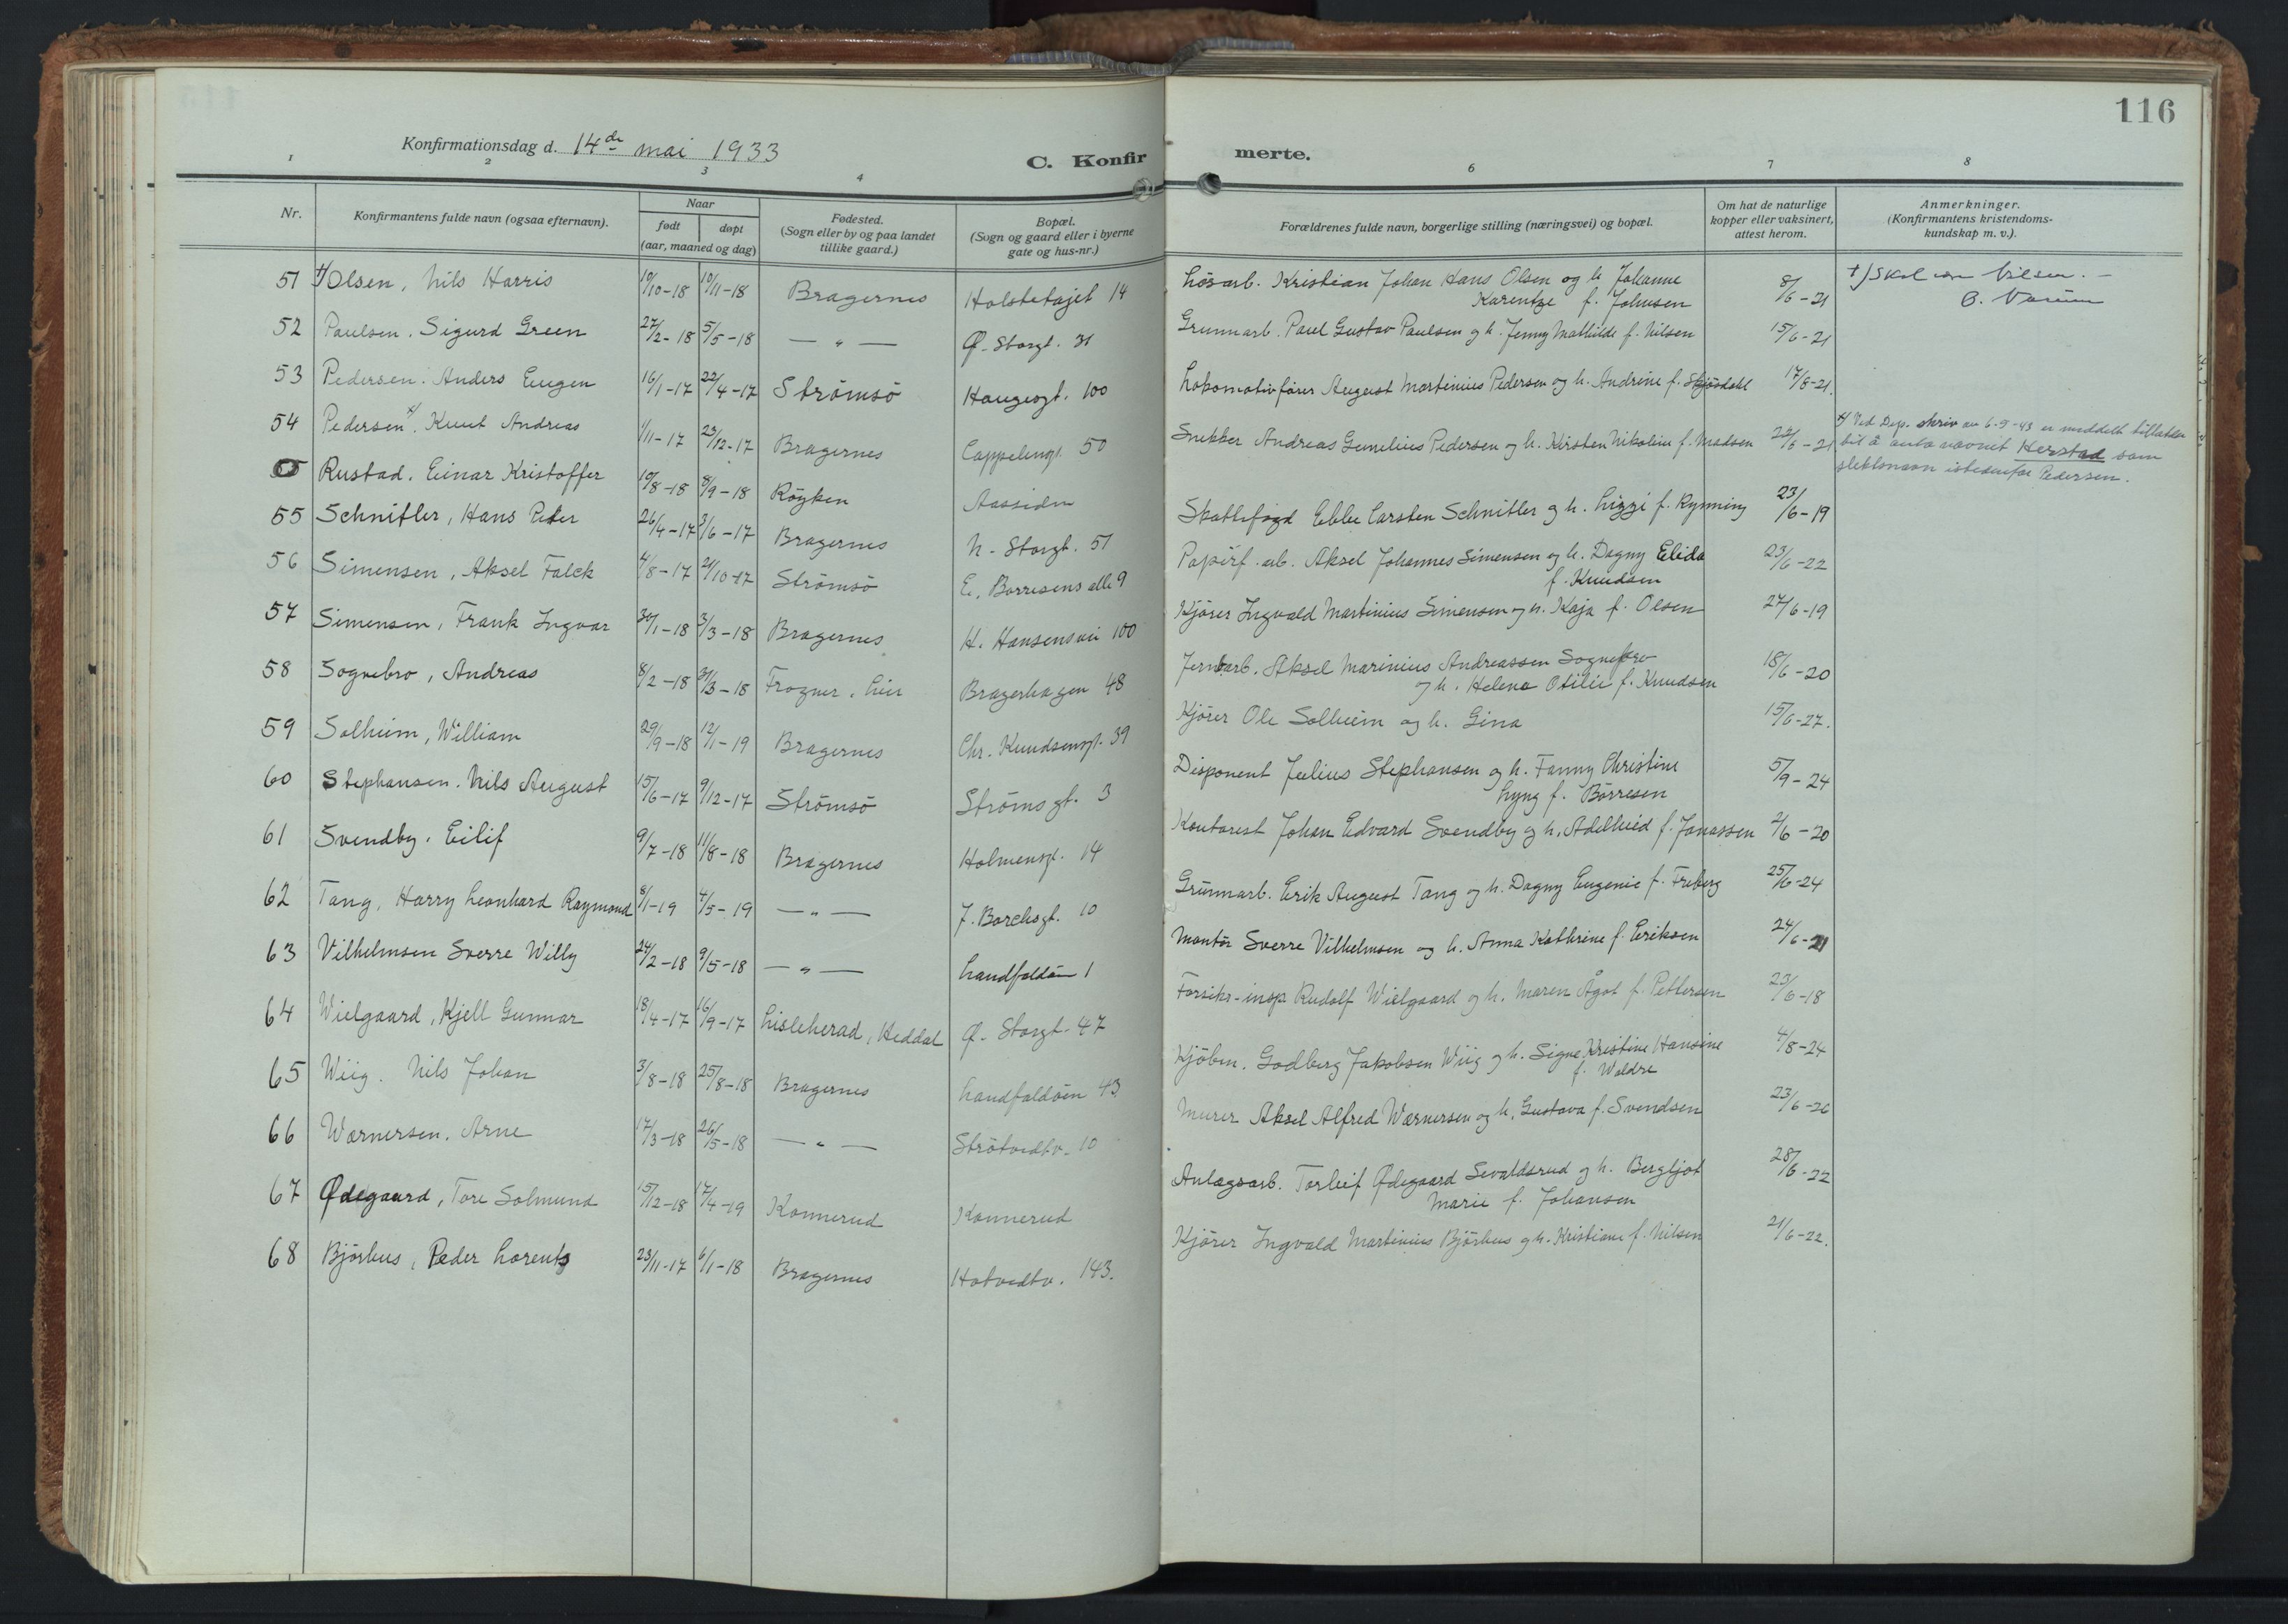 116
Konfirmationsdag d. 14de mai 1933
C. Konfirmerte.
1 2 3 4 6 7 8
Nr.
Konfirmantens fulde navn (ogsaa efternavn).
Naar
født døpt
(aar, maaned og dag)
Fødested.
(Sogn eller by og paa landet
tillike gaard.)
Bopæl.
(Sogn og gaard eller i byerne
gate og hus-nr.)
Forældrenes fulde navn, borgerlige stilling (næringsvei) og bopæl.
Om hat de naturlige
kopper eller vaksinert,
attest herom.
Anmerkninger.
(Konfirmantens kristendoms-
kundskap m. v.).
51 +/ Olsen, Nils Harris 19/10-18 10/11-18 Bragernes Holstetajet 14 Løsarb. Kristian Johan Hans Olsen og h. Johanne 8/6-21 +/ Skal
Karentze f. Johnsen
52 Paulsen, Sigurd Green 27/2-18 5/5-18 — " — Ø. Storgt. 31 Grunnarb. Paul Gustav Paulsen og h. Jenny Mathilde f. Nilsen 15/6-21
53 Pedersen, Anders Eugen 16/1-17 22/4-17 Strömsö Haugesgt. 100 Lokomotivfører August Martinius Pedersen og h. Andrine f. 17/6-21.
54 Pedersen x/, Knut Andreas 1/11-17 23/12-17 Bragernes Cappelensgt. 50 Snekker Andreas Gunelius Pedersen og h. Kirsten Nikoline f. Madsen 22/6-21 x/ Ved Dep. skriv av 6-9-43 er meddelt tillatelse
til å anta navnet Herstad som
slektsnavn istedenfor Pedersen.
Rustad, Einar Kristoffer 19/8-18 8/9-18 Röyken Aassiden
55 Schnitler, Hans Peter 26/4-17 3/6-17 Bragernes N. Storgt. 51 Skattefogd Ebbe Carsten Schnitler og h. Lizzi f. Rynning 23/6-19
56 Simensen, Aksel Falck 4/8-17 21/10-17 Strömsö E. Borresens alle 9 Papirf. arb. Aksel Johannes Simensen og h. Dagny Elida 23/6-22
f. Knudsen
57 Simensen, Frank Ingvar 30/1-18 3/3-18 Bragernes H. Hansensvei 100 Kjører Ingvald Martinius Simensen og h. Kaja f. Olsen 27/6-19
58 Sognebro, Andreas 8/2-18 31/3-18 Frogner, Lier Bragerhagen 48 Jernbarb. Aksel Marinius Andreassen Sognebro 18/6-20
og h. Helena Otilie f. Knudsen
59 Solheim, William 29/9-18 12/1-19 Bragernes Chr. Knudsensgt. 39 Kjører Ole Solheim og h. Gina 15/6-27.
60 Stephansen, Nils August 15/6-17 9/12-17 Strömsö Strömsgt. 3 Disponent Julius Stephansen og h. Fanny Christine 5/9-24
Lyng f. Børresen
61 Svendby, Eilif 9/7-18 11/8-18 Bragernes Holmensgt. 14 Kontorist Johan Edvard Svendby og h. Adelheid f. Jonassen 2/6-20
62 Tang, Harry Leonhard Raymond 8/1-19 4/5-19 — " — J. Borchsgt. 10 Grunnarb. Erik August Tang og h. Dagny Eugenie f. Friberg 25/6-24
63 Vilhelmsen Sverre Willy 24/2-18 9/5-18 — " — Landfaldöen 1 Montör Sverre Vilhelmsen og h. Anna Kathrine f. Eriksen 24/6-21
64 Wielgaard, Kjell Gunnar 18/4-17 16/9-17 Lisleherad, Heddal Ø. Storgt. 47 Forsikr.-insp Rudolf Wielgaard og h. Maren Ågot f. Pettersen 23/6-18
65 Wiig, Nils Johan 3/8-18 25/8-18 Bragernes Landfaldöen 43 Kjöbm. Godberg Jakobsen Wiig og h. Signe Kristine Hansine 4/8-24
f. Waldre
66 Wærnersen, Arne 17/3-18 26/5-18 — " — Strötvedtv. 10 Murer Aksel Alfred Wærnersen og h. Gustava f. Svendsen 23/6-26
67 Ødegaard, Tore Solmund 15/12-18 17/4-19 Konnerud Konnerud Anlægsarb. Torleif Ødegaard Sevaldsrud og h. Bergljot 28/6-22
Marie f. Johansen
68 Bjørhus, Peder Lorents 23/11-17 6/1-18 Bragernes Hotvedtv. 143. Kjører Ingvald Martinius Bjørhus og h. Kristiane f. Nilsen 21/6-22.